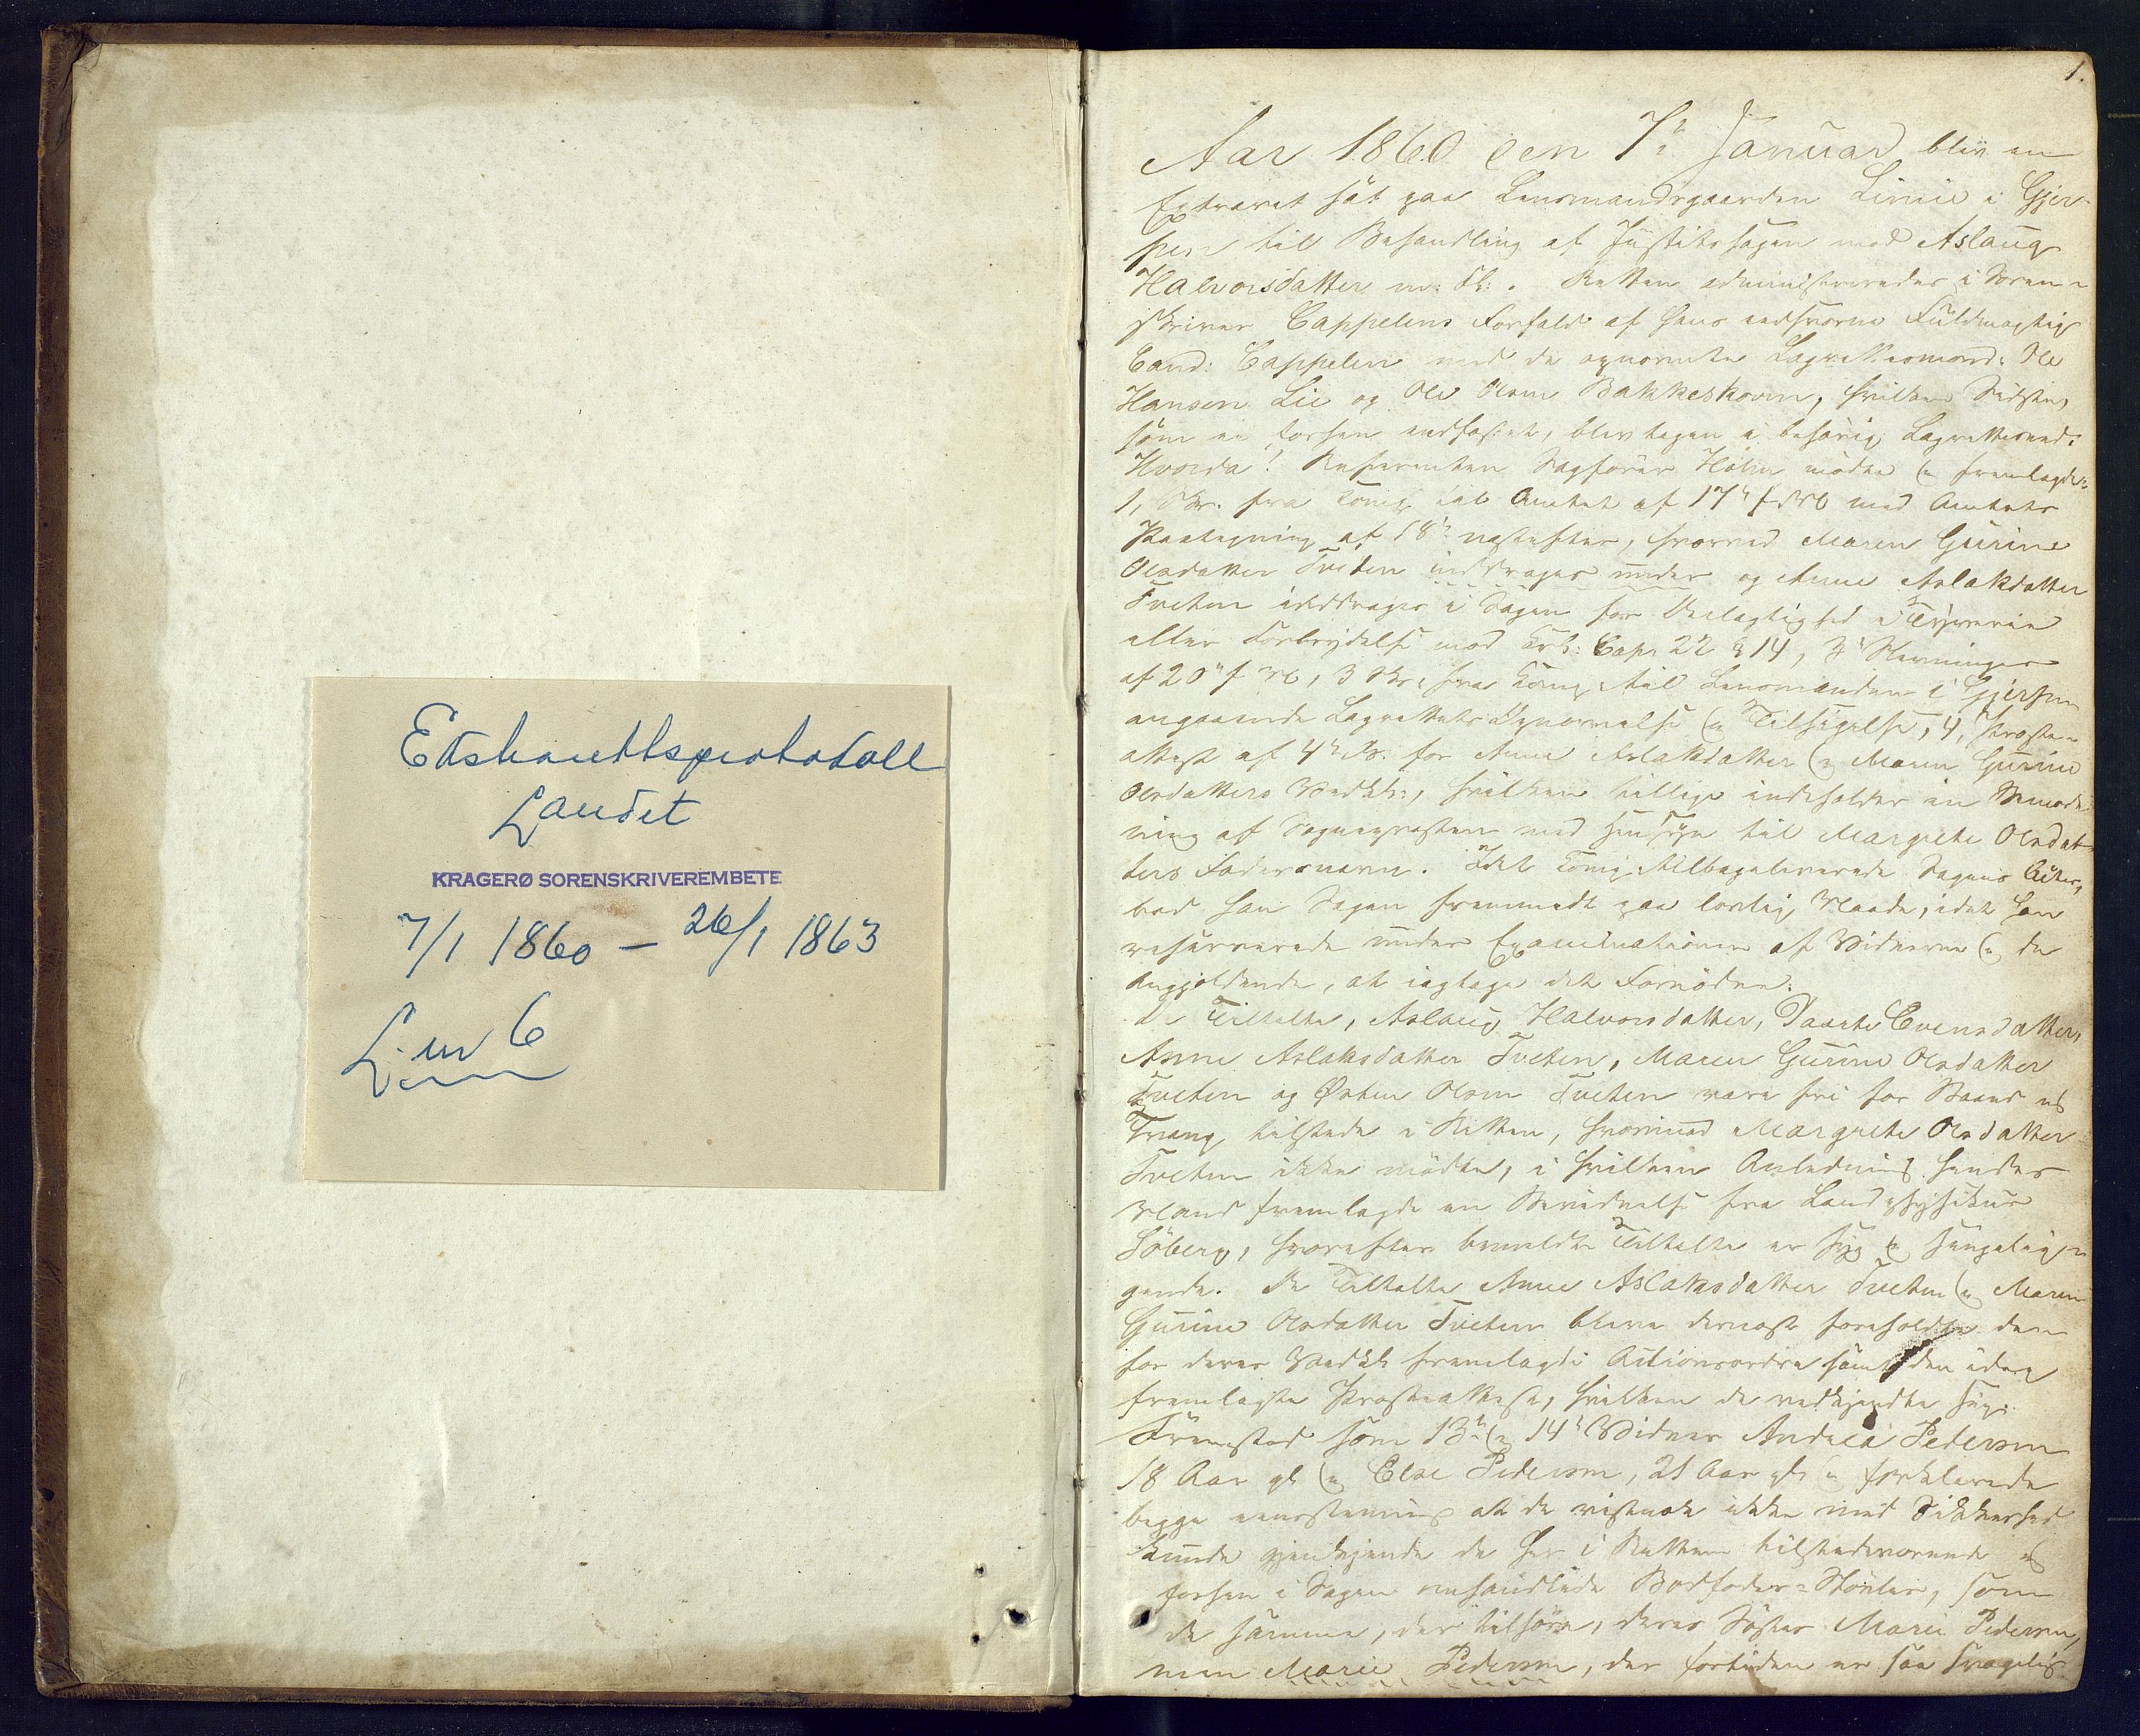 Ekstrarettsprotokoll
Landet
KRAGERØ SORENSKRIVEREMBETE
7/1 1860 – 26/1 1863
L. nr 6
1.
Aar 1860 den 7de Januar blev en
Extraret sat paa Lensmandsgaarden Limie i Gjer-
pen til Behandling af Justitssagen mod Aslaug
Halvorsdatter m: fl:. Retten administreredes i Soren-
skriver Cappelens Forfald af hans edsvorne Fuldmægtig
Cand: Cappelen med de opnævnte Lagrettesmænd: Ole
Hansen Lie og Ole Olsen Bakkeskoven, hvilken Sidste,
som ei forhen edfæstet, blev tagen i behørig Lagrettesed.
Hvorda! Referenten Sagfører Holm mødte og fremlagde:
1, Skr. fra Comp. til Amtet af 17de f. M. med Amtets
Paategning af 18de næstefter, hvorved Maren Gurine
Olsdatter Tveten inddrages under og Anne Aslaksdatter
Tveten inddrages i Sagen for Delagtighed i Tyverie
eller Forbrydelse mod Crl: Cap. 22 § 14, 2, Stevninger
af 20de f. M., 3 Skr. fra Comp. til Lensmanden i Gjerpen
angaaende Lagrettets Opnævnelse og Tilsigelse, 4, Præste-
attest af 4de ds. for Anne Aslaksdatter og Maren Gurine
Olsdatters Vedk:, hvilken tillige indeholder en Bemærk-
ning af Sognepræsten med Hensyn til Margrethe Olsdat-
ters Fadersnavn. Idet Comp. tilbageleverede Sagens Acter,
bad han Sagen fremmedt paa lovlig Maade, idet han
reserverede under Examinationen af Vidnerne og de
Angjældende, at iagtage det Fornødne.
De Tiltalte, Aslaug Halvorsdatter, Taarte Evensdatter,
Anne Aslaksdatter Tveten, Maren Gurine Olsdatter
Tveten og Østen Olsen Tveten vare fri for Baand og
Tvang tilstede i Retten, hvorimod Margrethe Olsdatter
Tveten ikke mødte, i hvilken Anledning hendes
Mand fremlagde en Bevidnelse fra Landphysikus
Söberg, hvorefter bemeldte Tiltalte er syg og sengelig-
gende. De Tiltalte Anne Aslaksdatter Tveten og Maren
Gurine Olsdatter Tveten bleve dernæst foreholdte den
for deres Vedk: fremlagde Actionsordre samt den idag
fremlagte Præsteattest, hvilken de vedkjendte sig.
Fremstod som 13de og 14de Vidner Andrea Pedersen
18 Aar gl. og Else Pedersen, 21 Aar gl. og forklarede
begge eenstemmig at de vistnok ikke med Sikkerhed
kunde gjenkjende de her i Retten tilstedeværende og
forhen i Sagen omhandlede Bodfoder-Stövler, som
de samme, der tilhøre, deres Søster Marie Pedersen,
men Marie Pedersen, der fortiden er saa svagelig